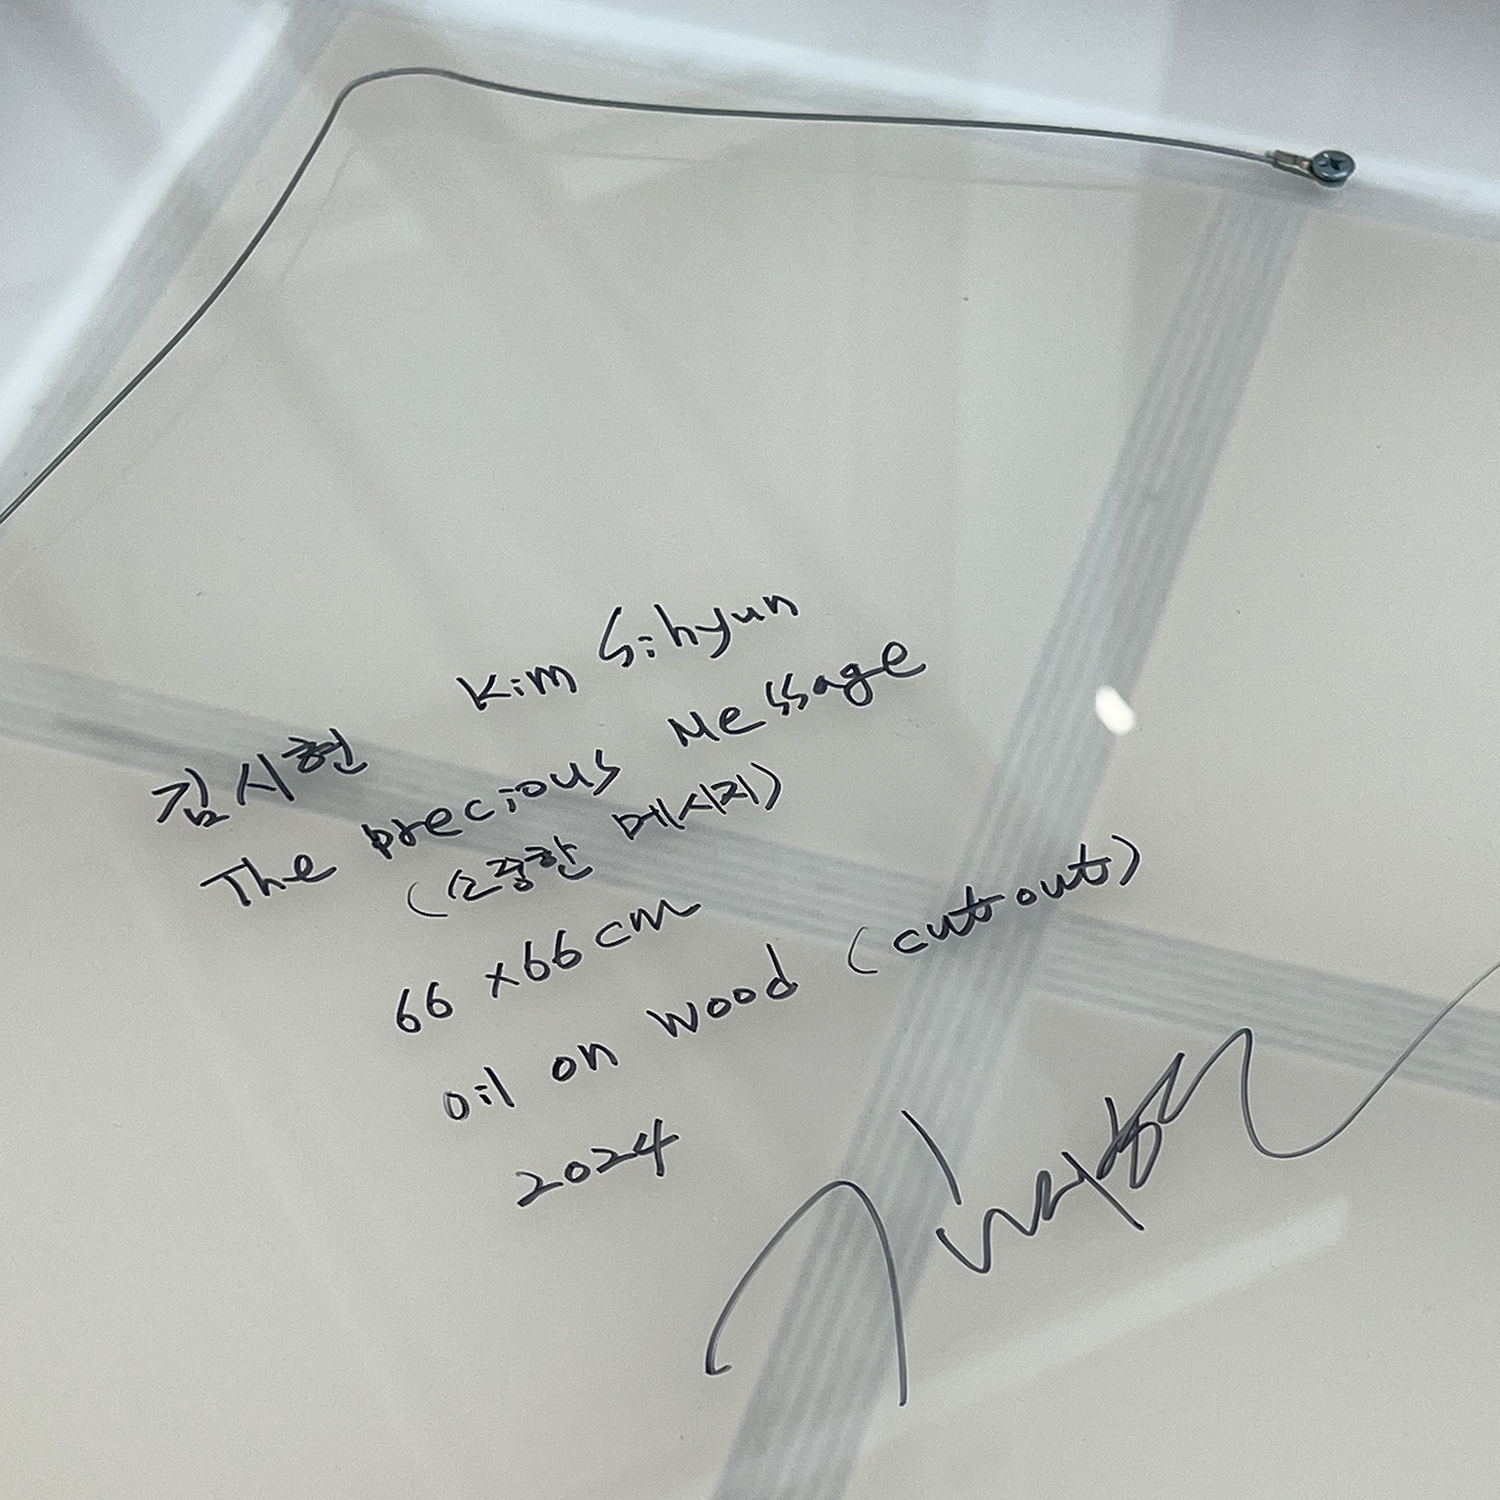 김시현 Kim Sihyun
The precious Message
(소중한 메시지)
66 x 66 cm
oil on wood (cut out)
2024